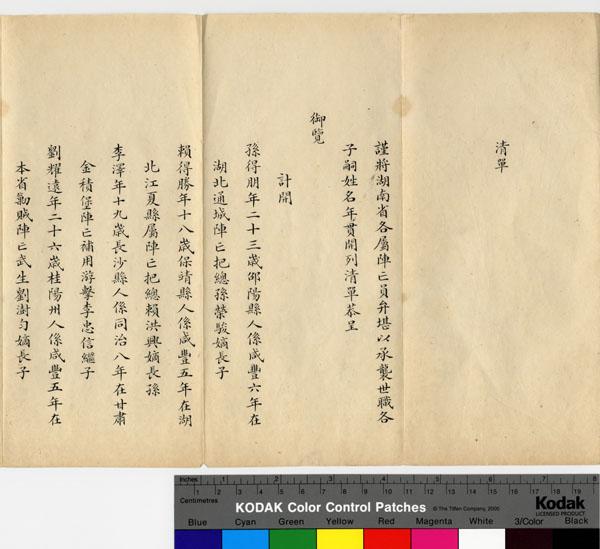 清單
謹將湖南省各屬陣亡員弁堪以承襲世職各
子嗣姓名年貫開列清單恭呈
御覽
計開
孫得朋年二十三歲邵陽縣人係咸豐六年在
湖北通城陣亡把總孫榮駿嫡長子
賴得勝年十八歲保靖縣人係咸豐五年在湖
北江夏縣屬陣亡把總賴洪興嫡長孫
李澤年十九歲長沙縣人係同治八年在甘肅
金積堡陣亡補用游擊李忠信繼子
劉耀遠年二十六歲桂陽州人係咸豐五年在
本省勦賊陣亡武生劉澍勻嫡長子
Inches 1 2 3 4 5 6 7 8
Centimetres 1 2 3 4 5 6 7 8 9 10 11 12 13 14 15 16 17 18 19
KODAK Color Control Patches
© The Tiffen Company, 2000
Kodak
LICENSED PRODUCT
Blue Cyan Green Yellow Red Magenta White 3/Color Black